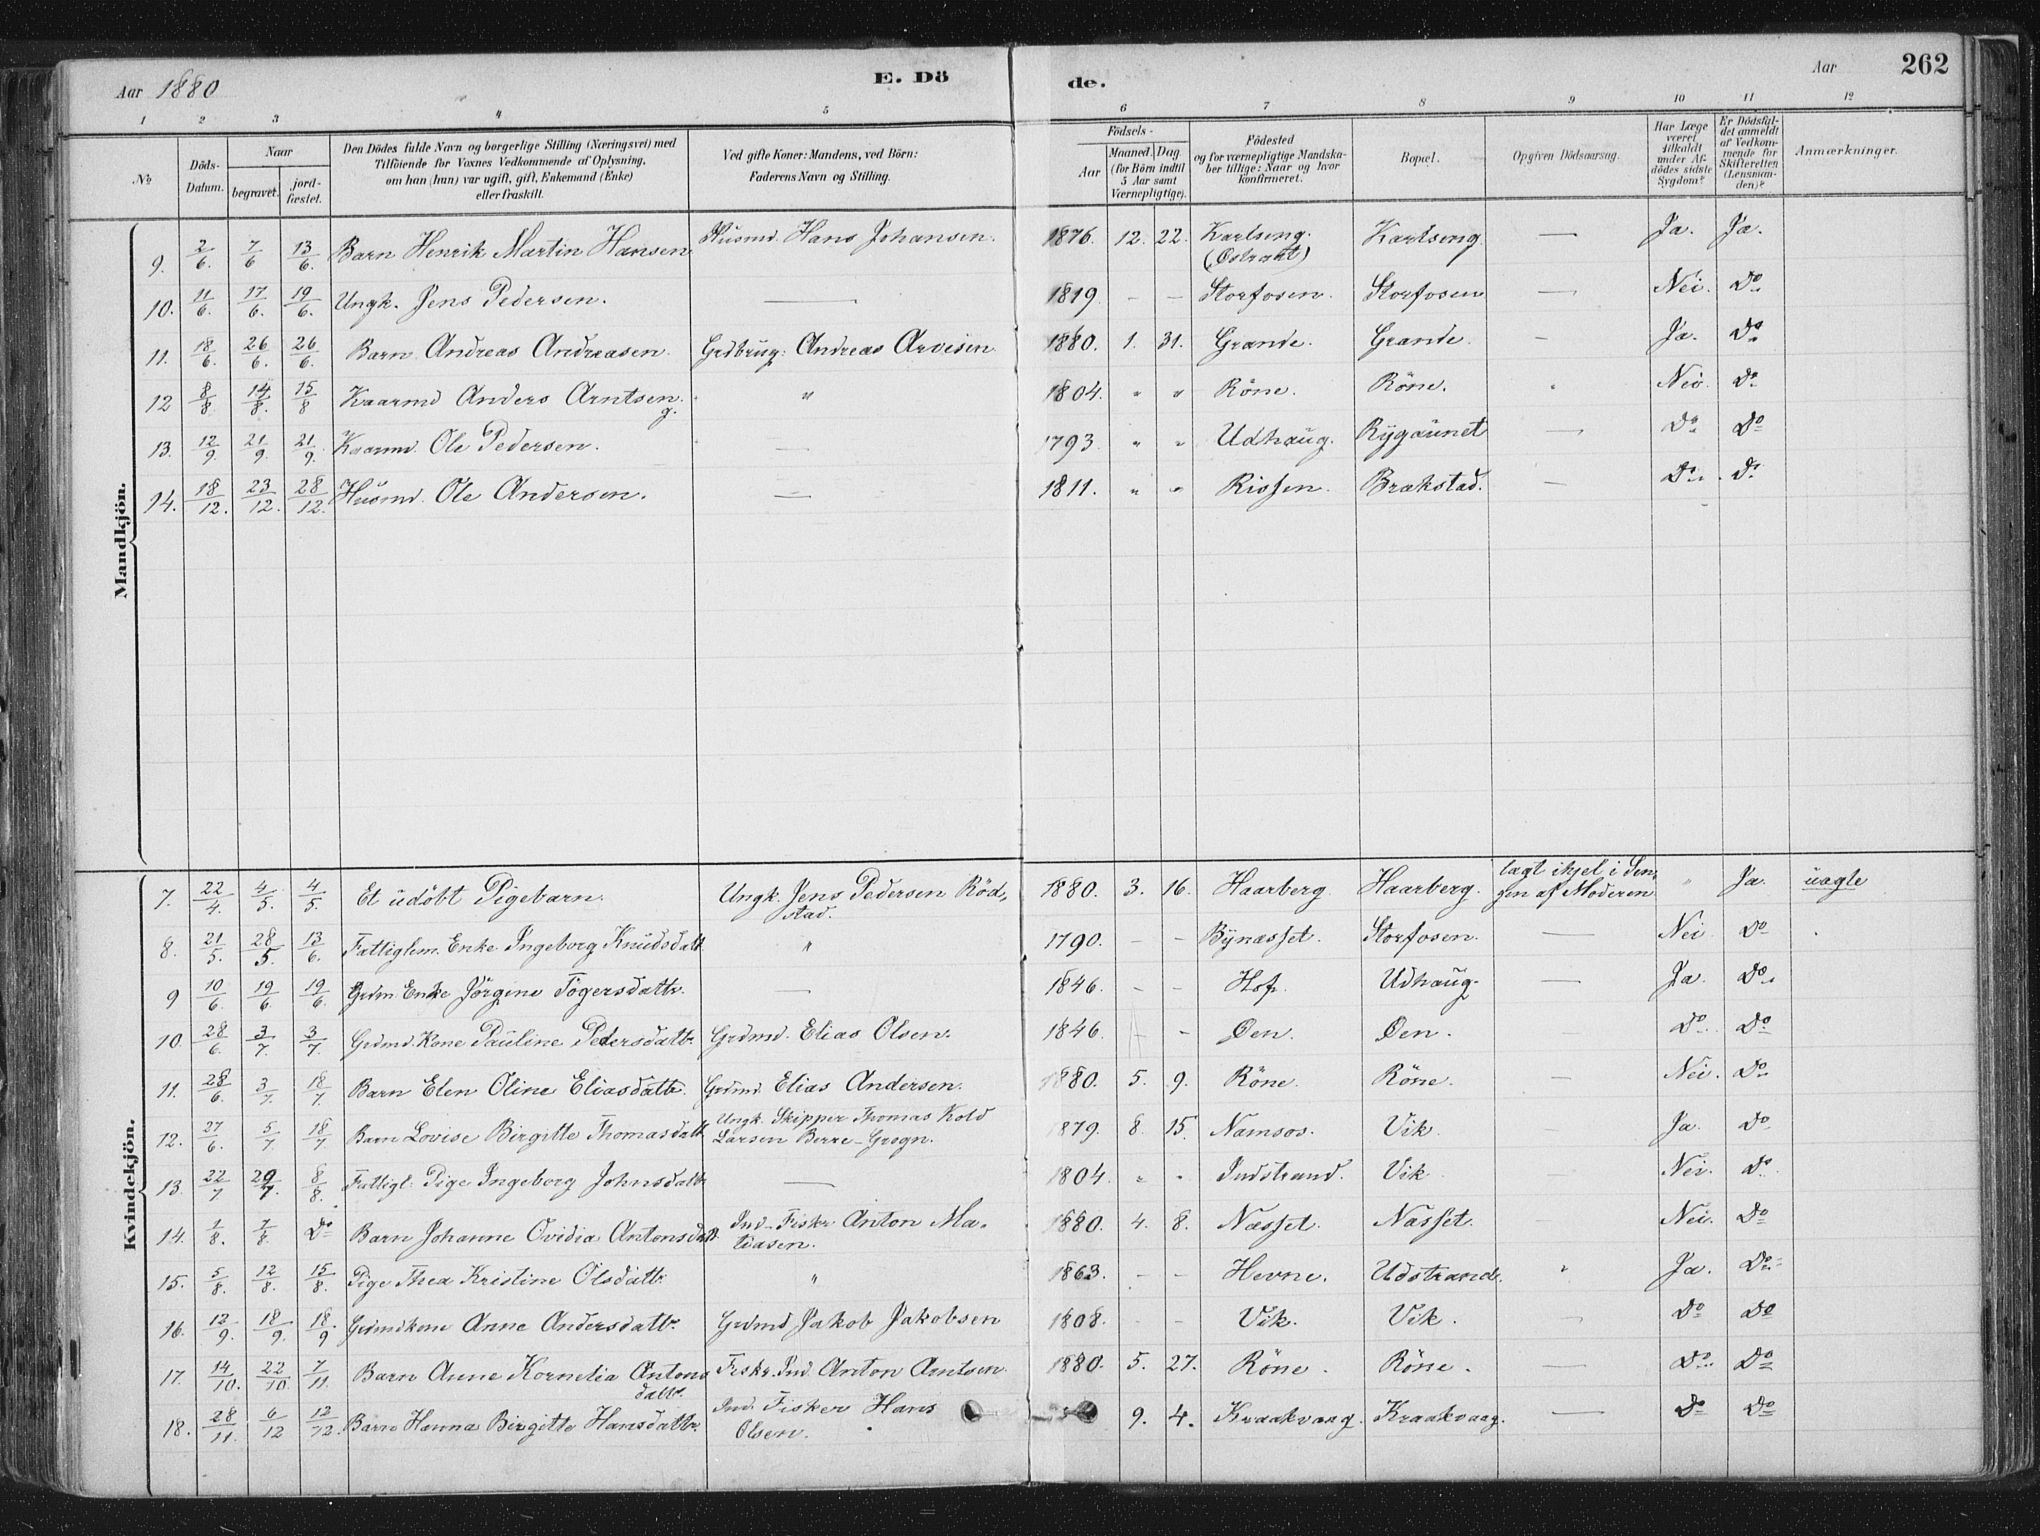 Aar 1880
E. Dö
de.
Aar
262
1 2 3 4 5 6 7 8 9 10 11 12
No
Döds-Datum.
Naar
begravet.
jord-fæstet.
Den Dödes fulde Navn og borgerlige Stilling (Næringsvei) med
Tilföiende for Voxnes Vedkommende af Oplysning,
om han (hun) var ugift, gift, Enkemand (Enke)
eller fraskilt.
Ved gifte Koner: Mandens, ved Börn:
Faderens Navn og Stilling.
Födsels-
Aar
Maaned. Dag.
(for Börn indtil
5 Aar samt
Værnepligtige).
Födested
og for værnepligtige Mandska-
ber tillige: Naar og hvor
konfirmeret.
Bopæl.
Opgiven Dödsaarsag.
Har Læge
været
tilkaldt
under Af-
dödes sidste
Sygdom?
Er Dödsfal-
det anmeldt
af Vedkom-
mende for
Skifteretten
(Lensman-
den)?
Anmærkninger.
Mandkjön.
9. 2/6. 7/6 13/6. Barn Henrik Martin Hansen Husmd. Hans Johansen. 1876. 12. 22. Karlseng. (Östraat) Karlseng — Ja. Ja.
10. 11/6. 17/6. 19/6. Ungk. Jens Pedersen. — 1819 – – Storfosen. Storfosen — Nei. Do
11. 18/6. 26/6. 26/6. Barn Andreas Andreasen. Grdbrug: Andreas Arvesen 1880. 1. 31. Grande. Grande. – Ja. Do
12 8/8. 14/8. 15/8 Kaarmd Anders Arntsen. " 1804. " " Röne. Röne. " Nei. Do
13. 12/9. 21/9. 21/9. Kaarmd. Ole Pedersen. — 1793 " " Udhaug. Rygaunet — Do Do
14. 18/12. 23/12. 28/12. Husmd. Ole Andersen. — 1811. " " Rissen. Brækstad. — Do Do
Kvindekjön.
7. 22/4. 4/5. 4/5. Et udöbt Pigebarn. Ungk. Jens Pedersen Röd-stad. 1880. 3. 16. Haarberg Haarberg. lagt ihjel i Sen-gen af Moderen " Ja. uægte
8. 21/5. 28/5. 13/6. Fattiglem. Enke Ingeborg Knudsdatt. " 1790. – – Bynæsset. Storfosen. — Nei. Do
9 10/6. 19/6 19/6. Grdm. Enke Jörgine Tögersdattr. — 1846. – – Hof. Udhaug. — Ja. Do
10. 28/6. 3/7. 3/7. Grdmd. Kone Pauline Petersdattr. Grdmd. Elias Olsen. 1846 – – Öen. Öen. — Do Do
11. 28/6. 3/7. 18/7. Barn Elen Oline Eliasdattr. Grdmd. Elias Andersen. 1880. 5. 9. Röne. Röne. — Nei. Do
12. 27/6. 5/7. 18/7. Barn Lovise Birgitte Thomasdatt. Ungk. Skipper Thomas Kold Larsen Berre – Grogn. 1879. 8. 15. Namsos. Vik. – Ja. Do
13. 22/7 29/7. 8/8. Fattigl. Pige Ingeborg Johnsdatt. — 1804. " " Indstrand. Vik – Nei. Do
14. 1/8. 7/8. Do Barn Johanne Ovidia Antonsdatt. Ind. Fisker Anton Ma-tiasen. 1880. 4. 8. Næsset. Næsset. – Nei. Do
15. 5/8. 12/8. 15/8. Pige Thea Kristine Olsdattr. " 1863. – – Hevne. Udstrand. " Ja. Do
16. 12/9. 18/9. 18/9 Grdmdkone Anne Andersdattr. Grdmd Jakob Jakobsen 1808. – – Vik. Vik. – Do Do
17. 14/10. 22/10. 7/11. Barn Anne Kornelia Antonsdattr. Fiskr. Ind. Anton Arntsen. 1880. 5. 27. Röne. Röne. — Do Do
18. 28/11. 6/12 12/12. Barn Hanna Birgitte Hansdattr. Ind. Fisker Hans Olsen. 9. 4. Kraakvaag. Kraakvaag. — Do Do